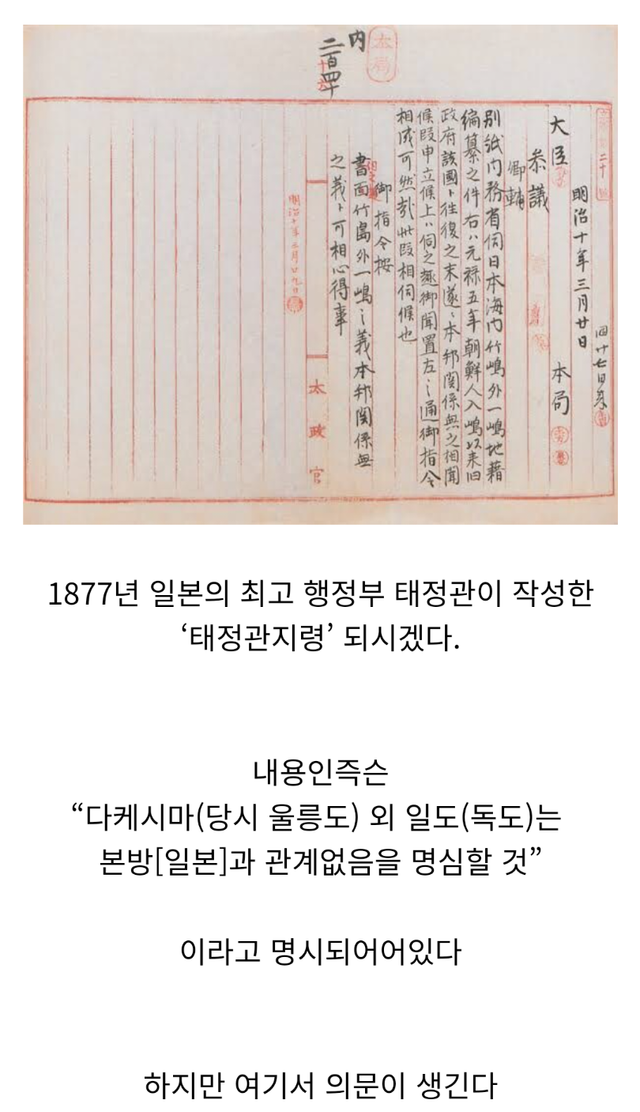 内
二百四十六
太局
四十七日来
明治十年三月廿日
本局
大臣
参議
卿輔
別紙内務省伺日本海内竹嶋外一嶋地籍
編纂之件右ハ元禄五年朝鮮人入嶋以来旧
政府該國ト往復之末遂ニ本邦関係無之相聞
候段申立候上ハ伺之趣御聞置左之通御指令
相成可然哉此段相伺候也
御指令按
書面竹島外一嶋之義本邦関係無
之義ト可相心得事
明治十年三月廿九日
太政官
1877년 일본의 최고 행정부 태정관이 작성한
‘태정관지령’ 되시겠다.
내용인즉슨
“다케시마(당시 울릉도) 외 일도(독도)는
본방[일본]과 관계없음을 명심할 것”
이라고 명시되어어있다
하지만 여기서 의문이 생긴다